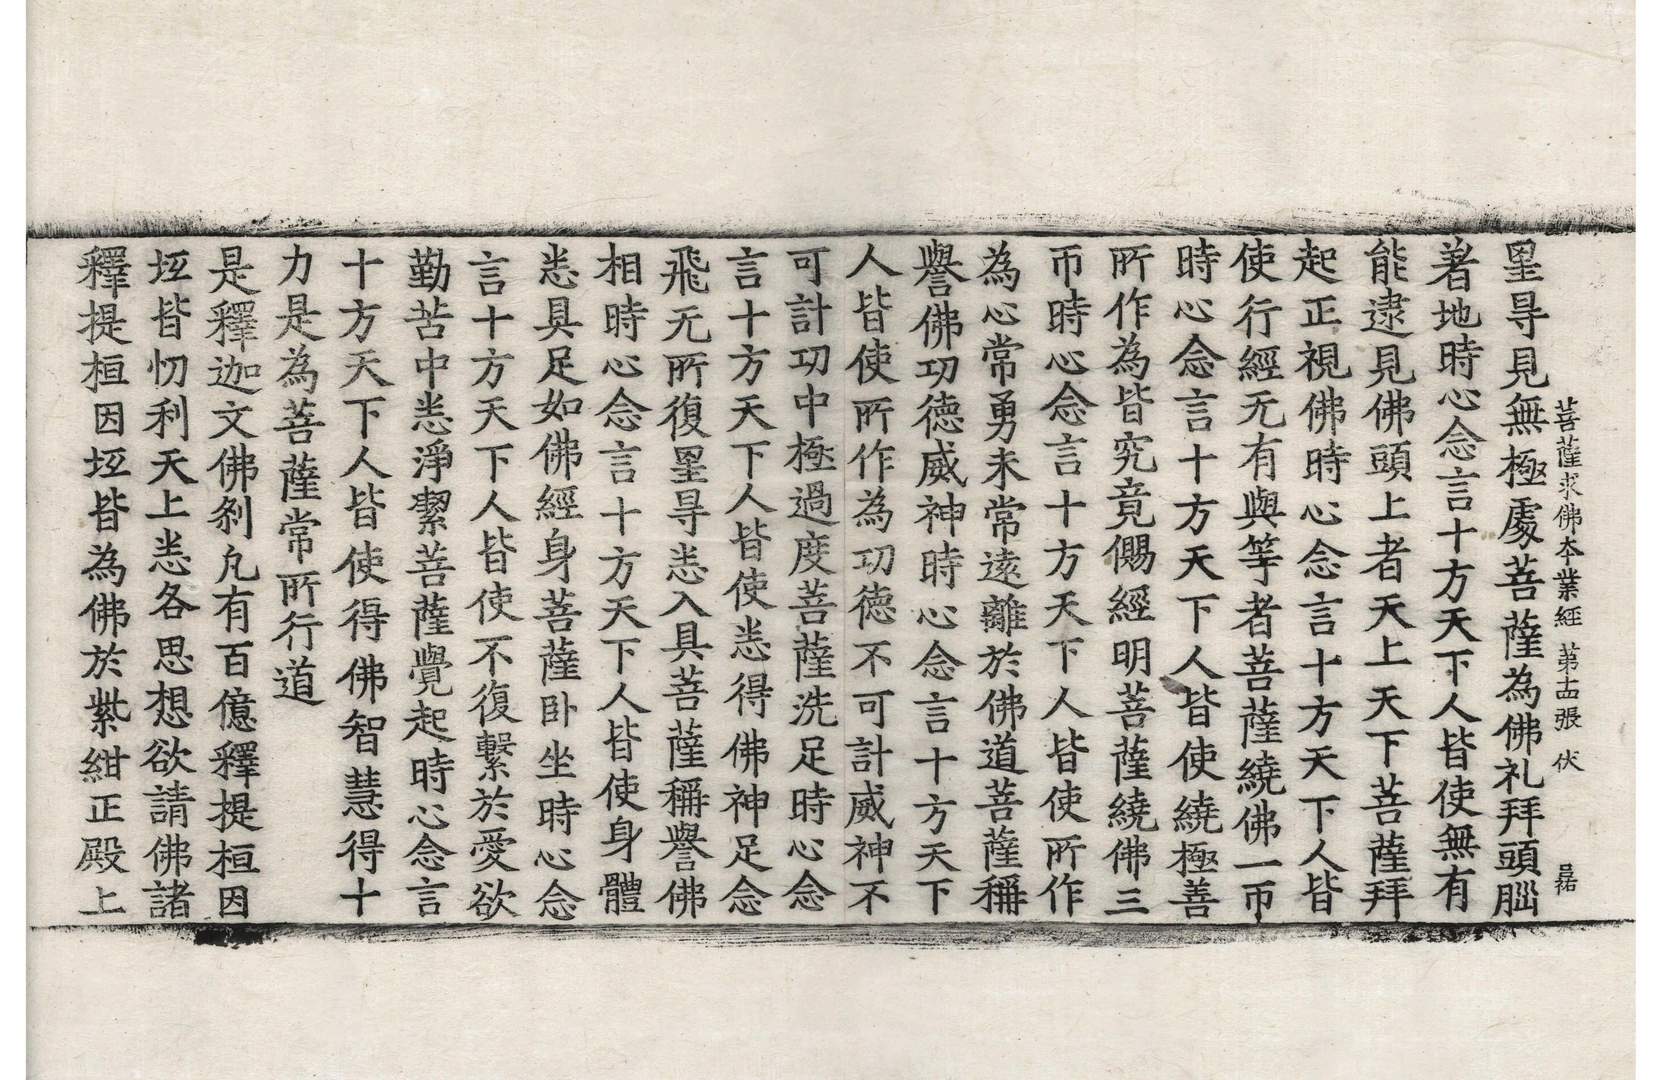 菩薩求佛本業經 第十五張 伏
罣㝵見無極處菩薩為佛礼拜頭腦
著地時心念言十方天下人皆使無有
能逮見佛頭上者天上天下菩薩拜
起正視佛時心念言十方天下人皆
使行經无有與等者菩薩繞佛一帀
時心念言十方天下人皆使繞極善
所作為皆究竟儩經明菩薩繞佛三
帀時心念言十方天下人皆使所作
為心常勇未常遠離於佛道菩薩稱
譽佛功德威神時心念言十方天下
人皆使所作為功德不可計威神不
可計功中極過度菩薩洗足時心念
言十方天下人皆使悉得佛神足念
飛无所復罣㝵悉入具菩薩稱譽佛
相時心念言十方天下人皆使身體
悉具足如佛經身菩薩卧坐時心念
言十方天下人皆使不復繫於愛欲
勤苦中悉淨潔菩薩覺起時心念言
十方天下人皆使得佛智慧得十
力是為菩薩常所行道
是釋迦文佛剎凡有百億釋提桓因
坁皆忉利天上悉各思想欲請佛諸
釋提桓因坁皆為佛於紫紺正殿上